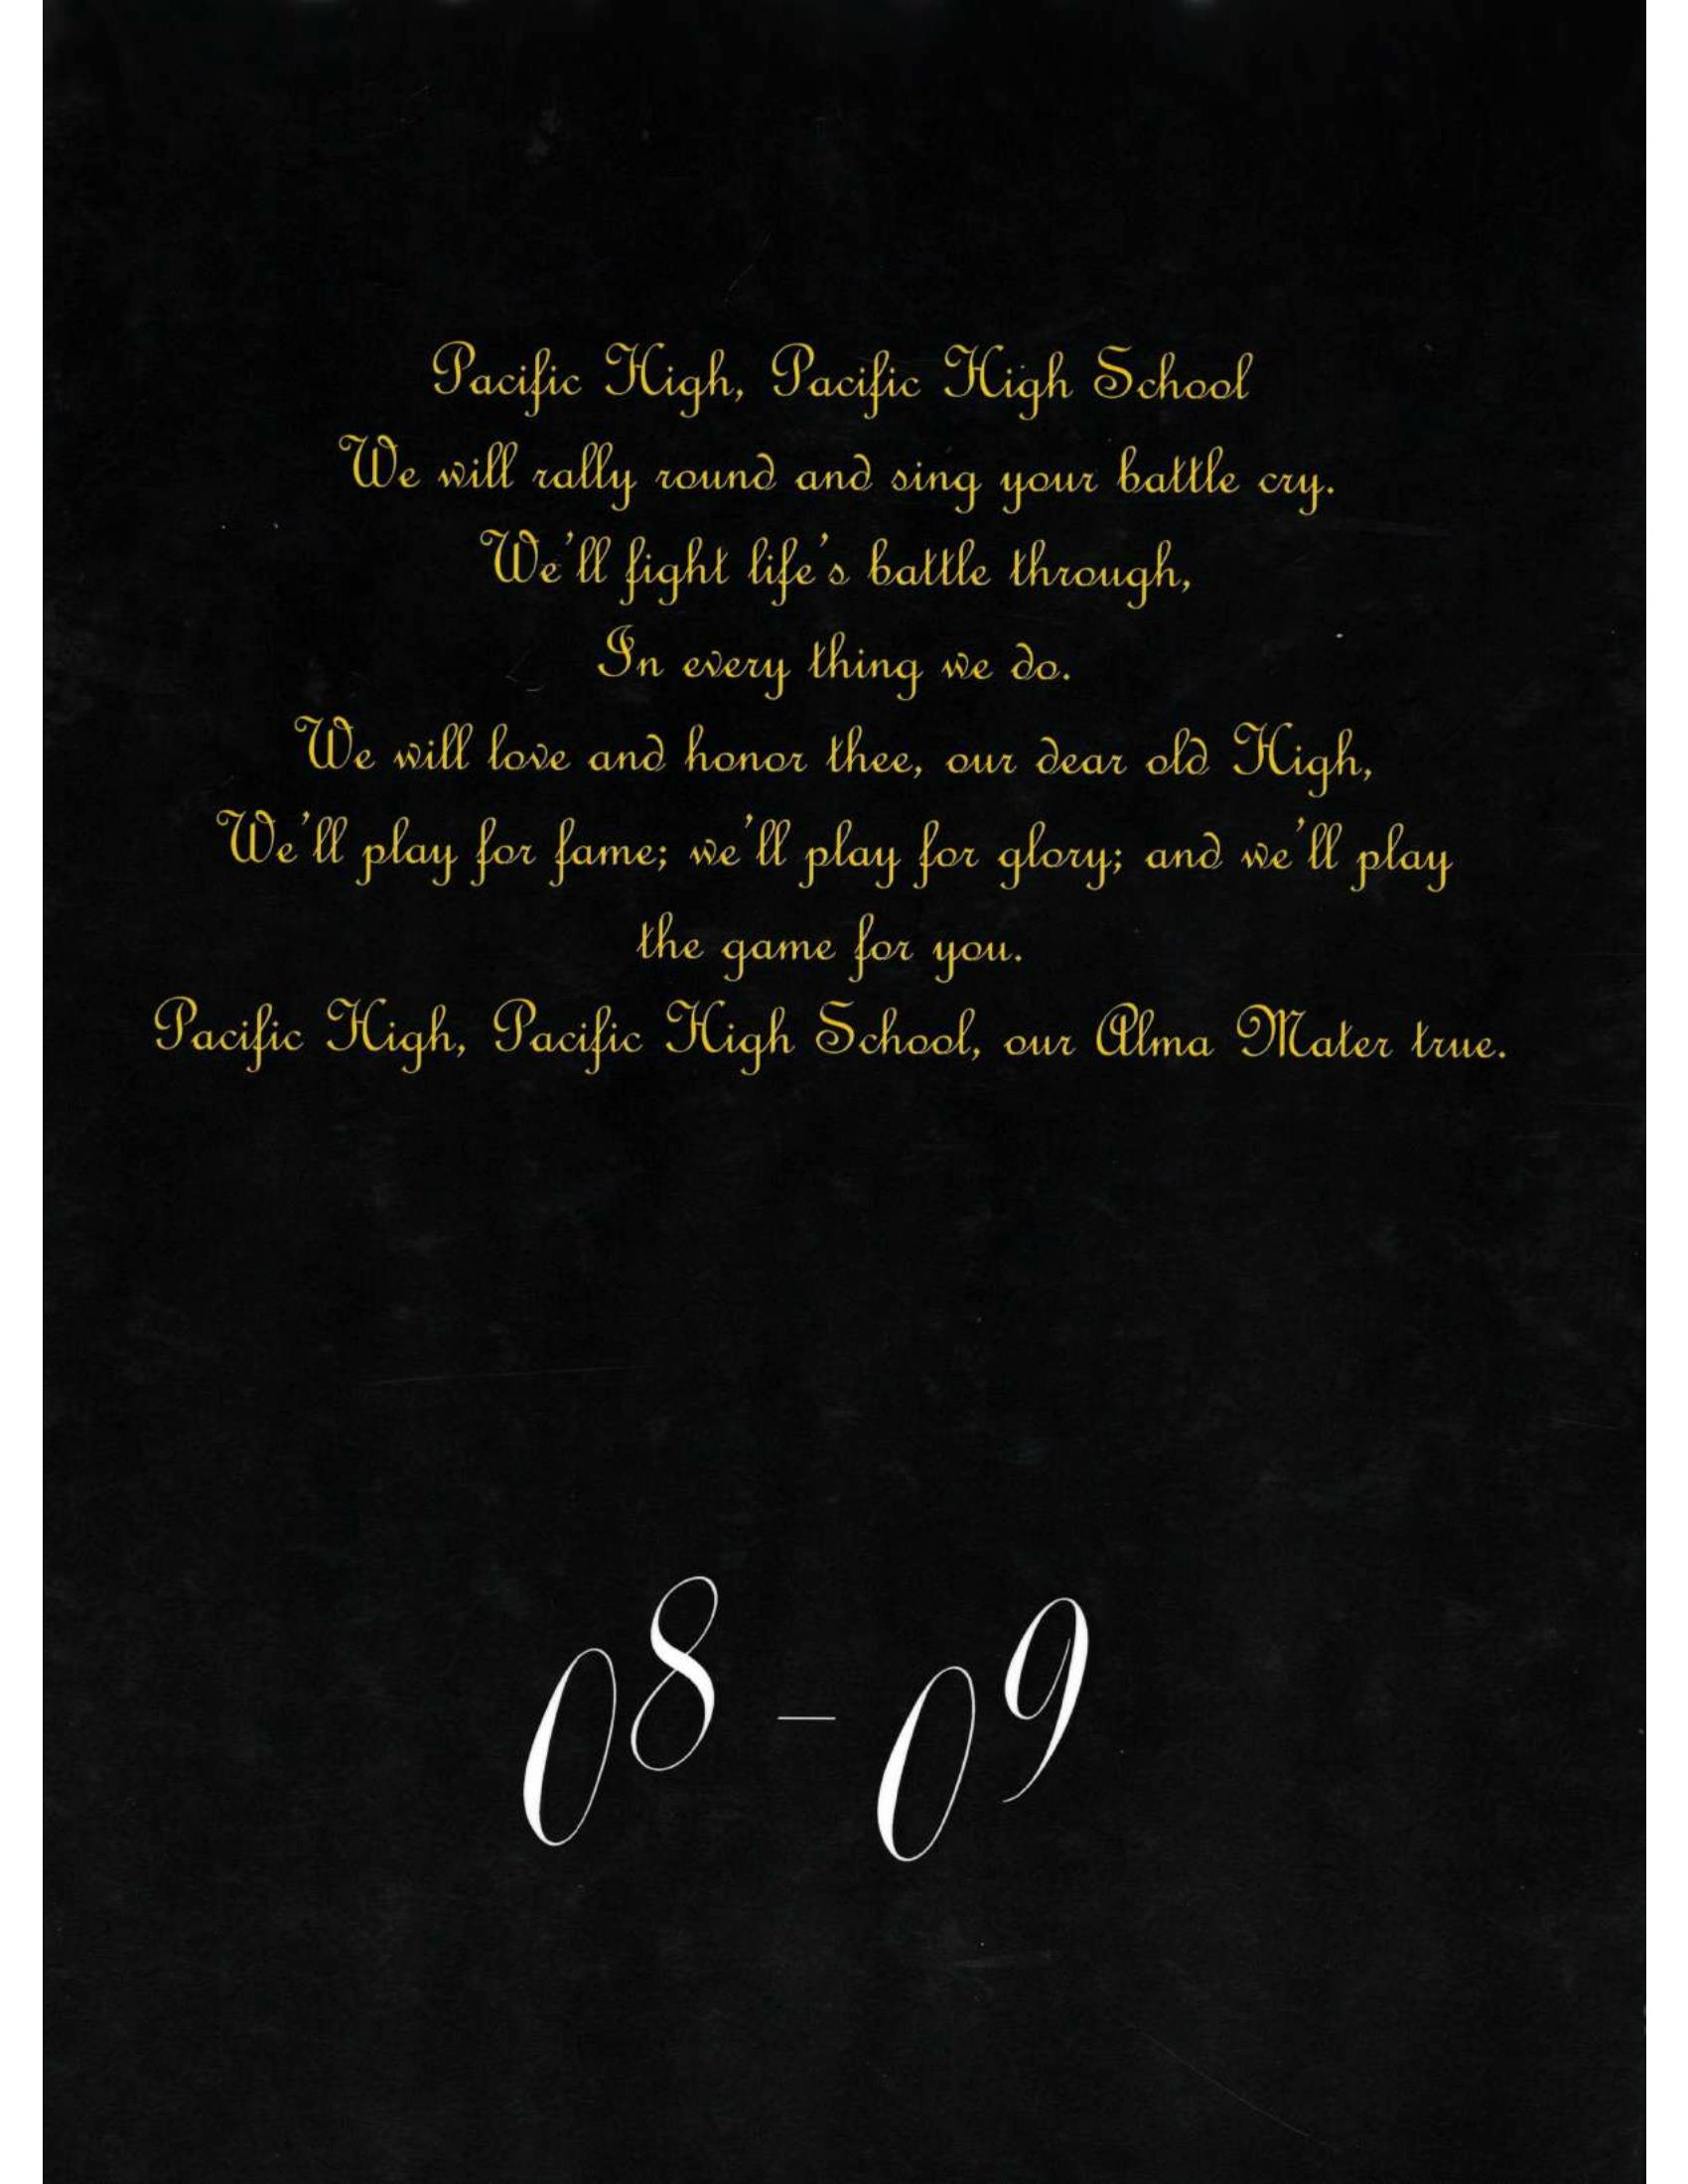 Pacific High, Pacific High School
We will rally round and sing your battle cry.
We'll fight life's battle through,
In every thing we do.
We will love and honor thee, our dear old High,
We'll play for fame; we'll play for glory; and we'll play
the game for you.
Pacific High, Pacific High School, our Alma Mater true.
08 - 09